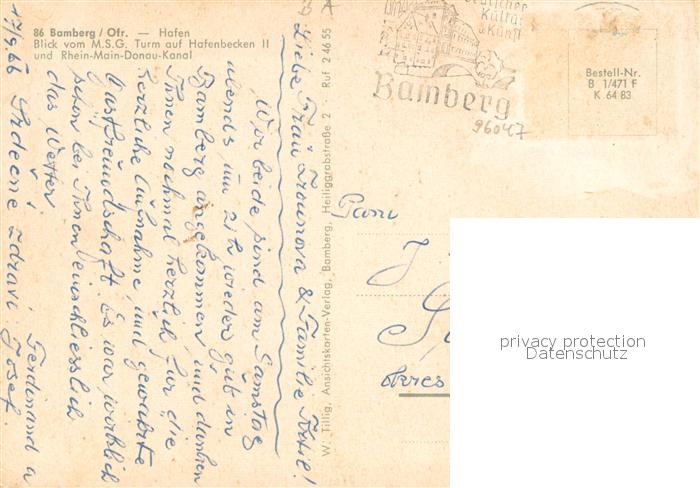 86 Bamberg / Ofr. — Hafen
Blick vom M.S.G. Turm auf Hafenbecken II
und Rhein-Main-Donau-Kanal
Deutscher
Kultur
& Kunst
Bamberg
96047
Bestell-Nr.
B 1/471 F
K 64 83
W. Tillig, Ansichtskarten-Verlag, Bamberg, Heiliggrabstraße 2 · Ruf 2 46 55
Liebe Frau & Familie
Wir beide sind am Samstag
abends um 21h wieder gut in
Bamberg angekommen und danken
Ihnen nochmal herzlich für die
herzliche Aufnahme und gewährte
Gastfreundschaft. Es war wirklich
schön bei Ihnen einschliesslich
das Wetter
Ferdinand u
17/9.66 Srdečne zdravi Josef.
privacy protection
Datenschutz